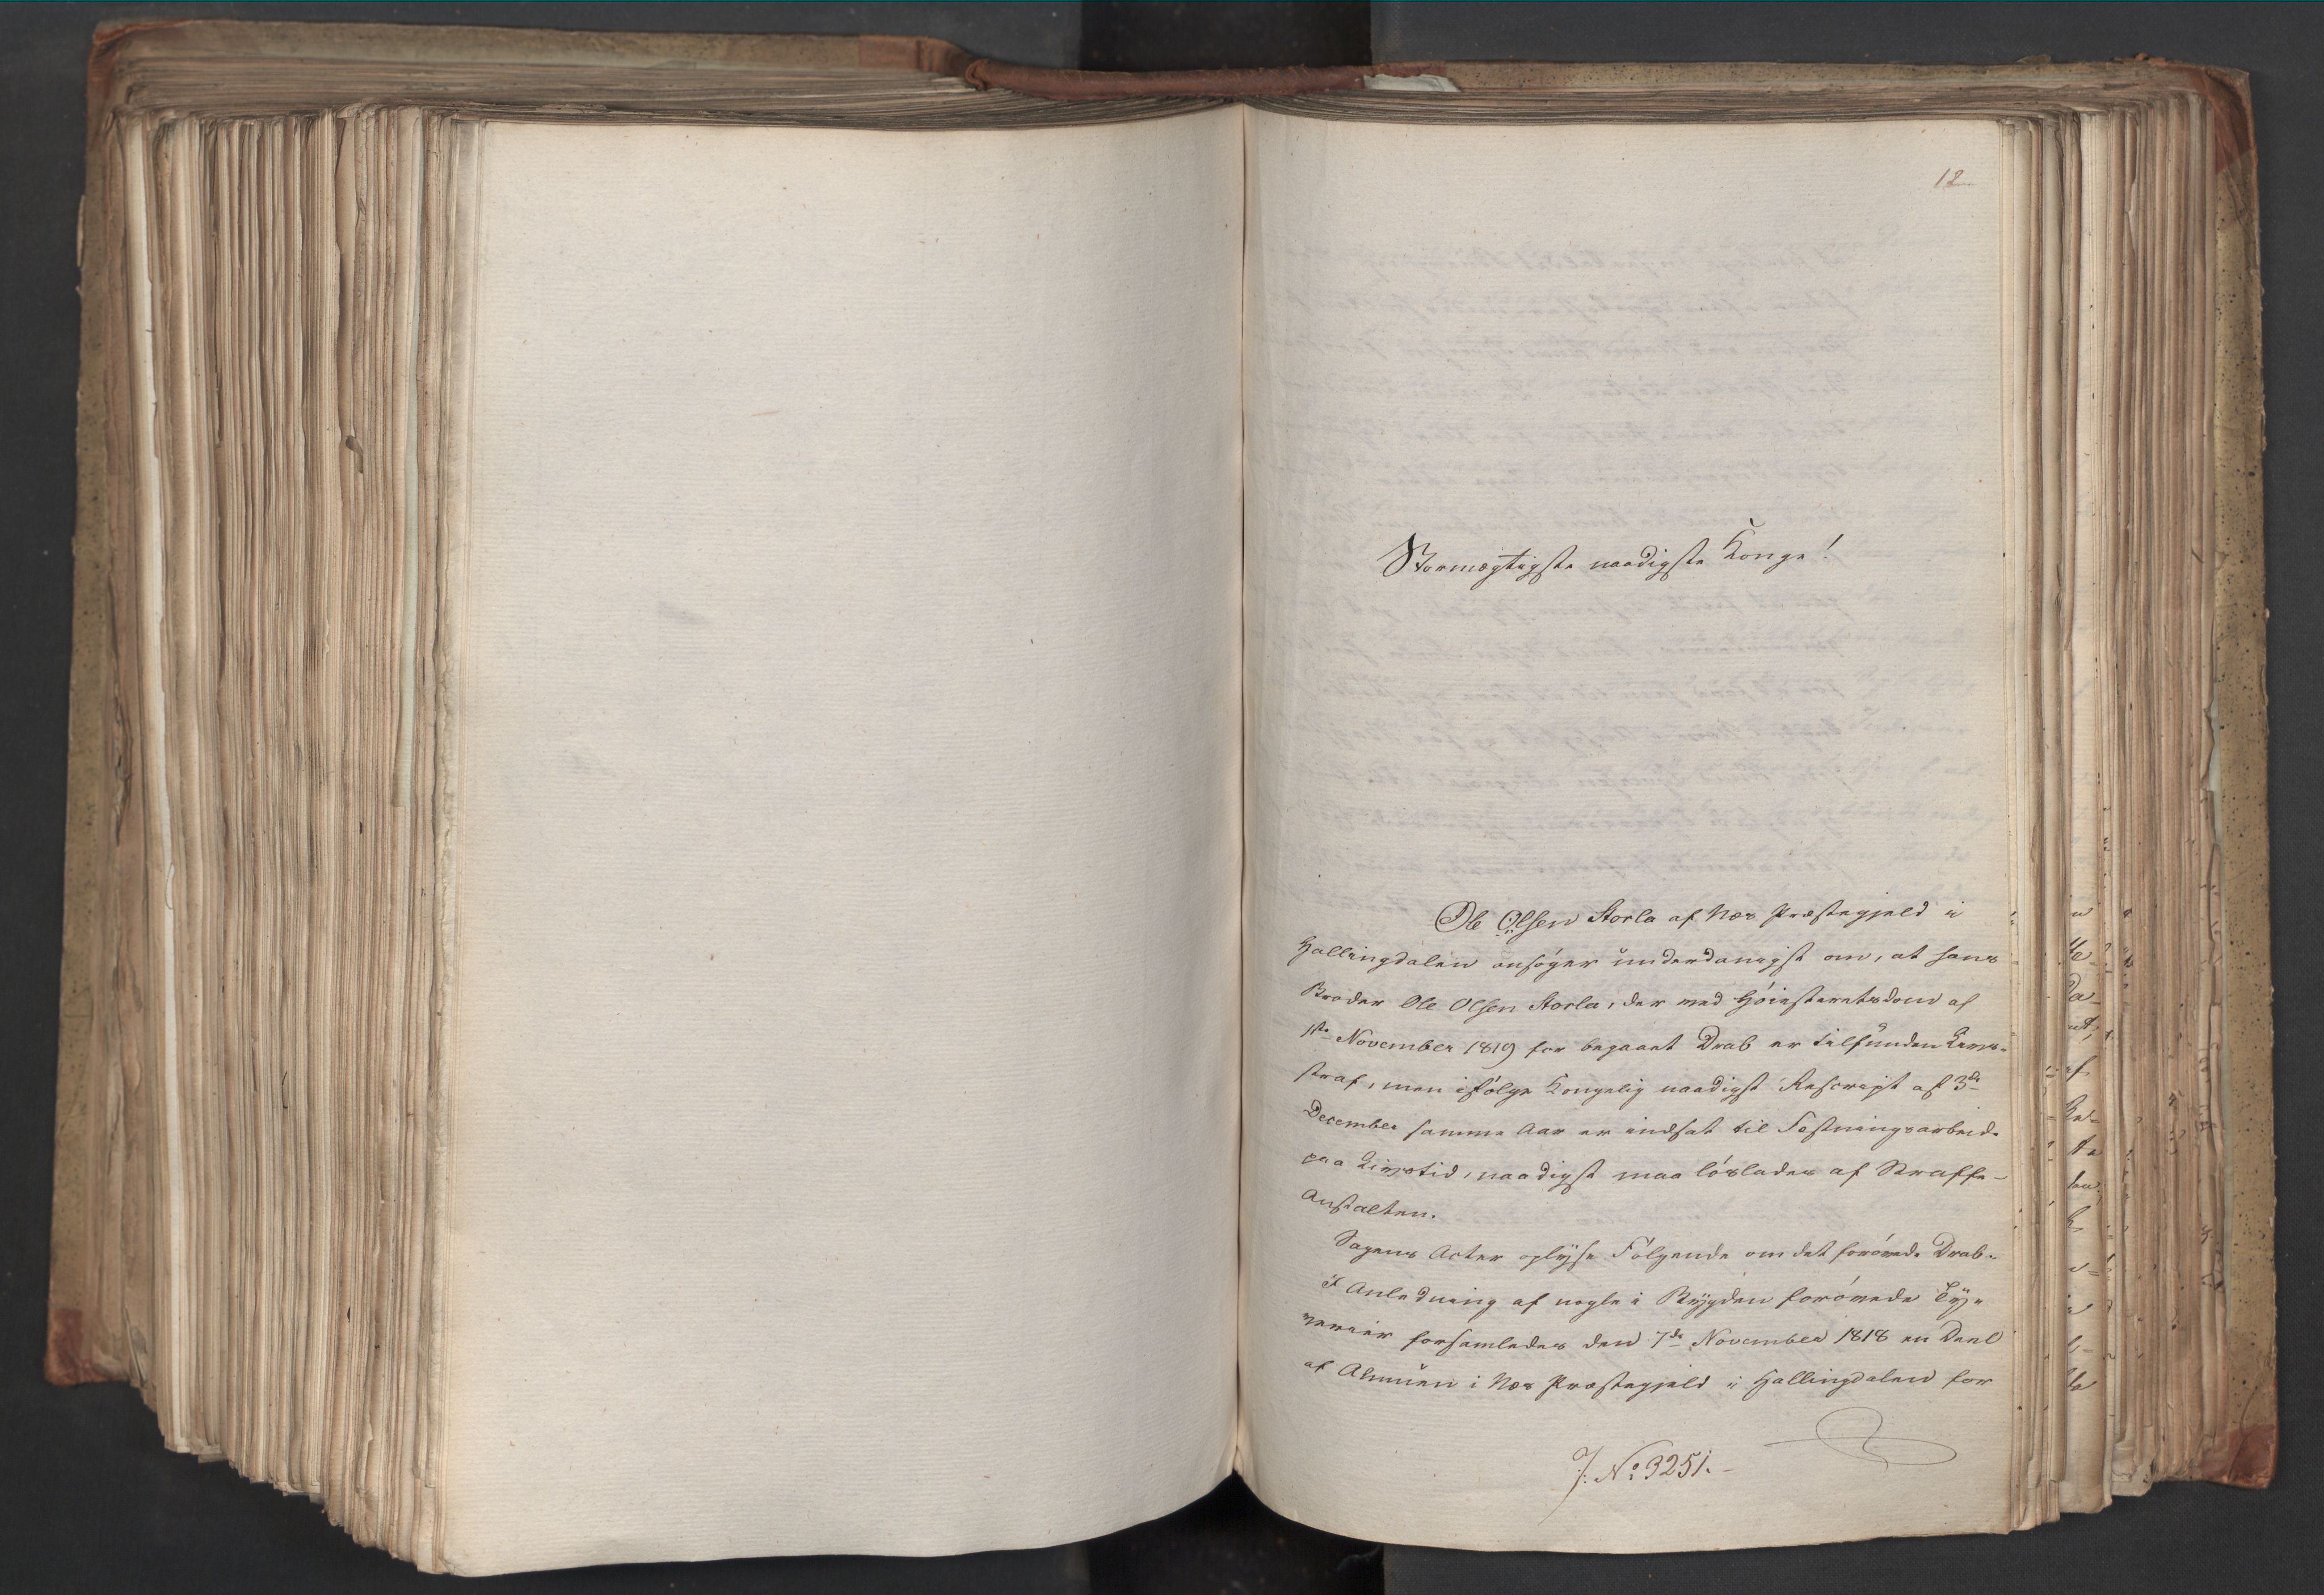 12
Stormægtigste naadigste Konge!
Ole Olsen Storla af Næs Præstegjeld i
Hallingdalen ansøger underdanigst om, at hans
Broder Ole Olsen Storla, der med Høiesteretsdom af
1ste November 1819 for begaaet Drab er tilfunden Livs-
straf, men ifølge Kongelig naadigst Rescript af 3de
December samme Aar er indsat til Fæstningsarbeide
paa Livstid, naadigst maa løslades af Straffe-
Anstalten.
Sagens Acter oplyse Følgende om det forøvede Drab.
I Anledning af nogle i Bygden forøvede Ty-
verier forsamledes den 7de November 1818 en Deel
af Almuen i Næs Præstegjeld i Hallingdalen for
J: No 3251.